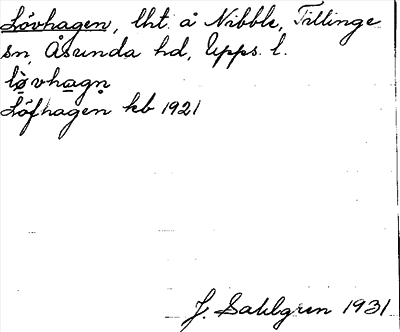 Lövhagen, lht. å Nibble, Tillinge
sn, Åsunda hd, Upps. l.
lø̀vhagn̥
Löfhagen kb 1921
J. Sahlgren 1931